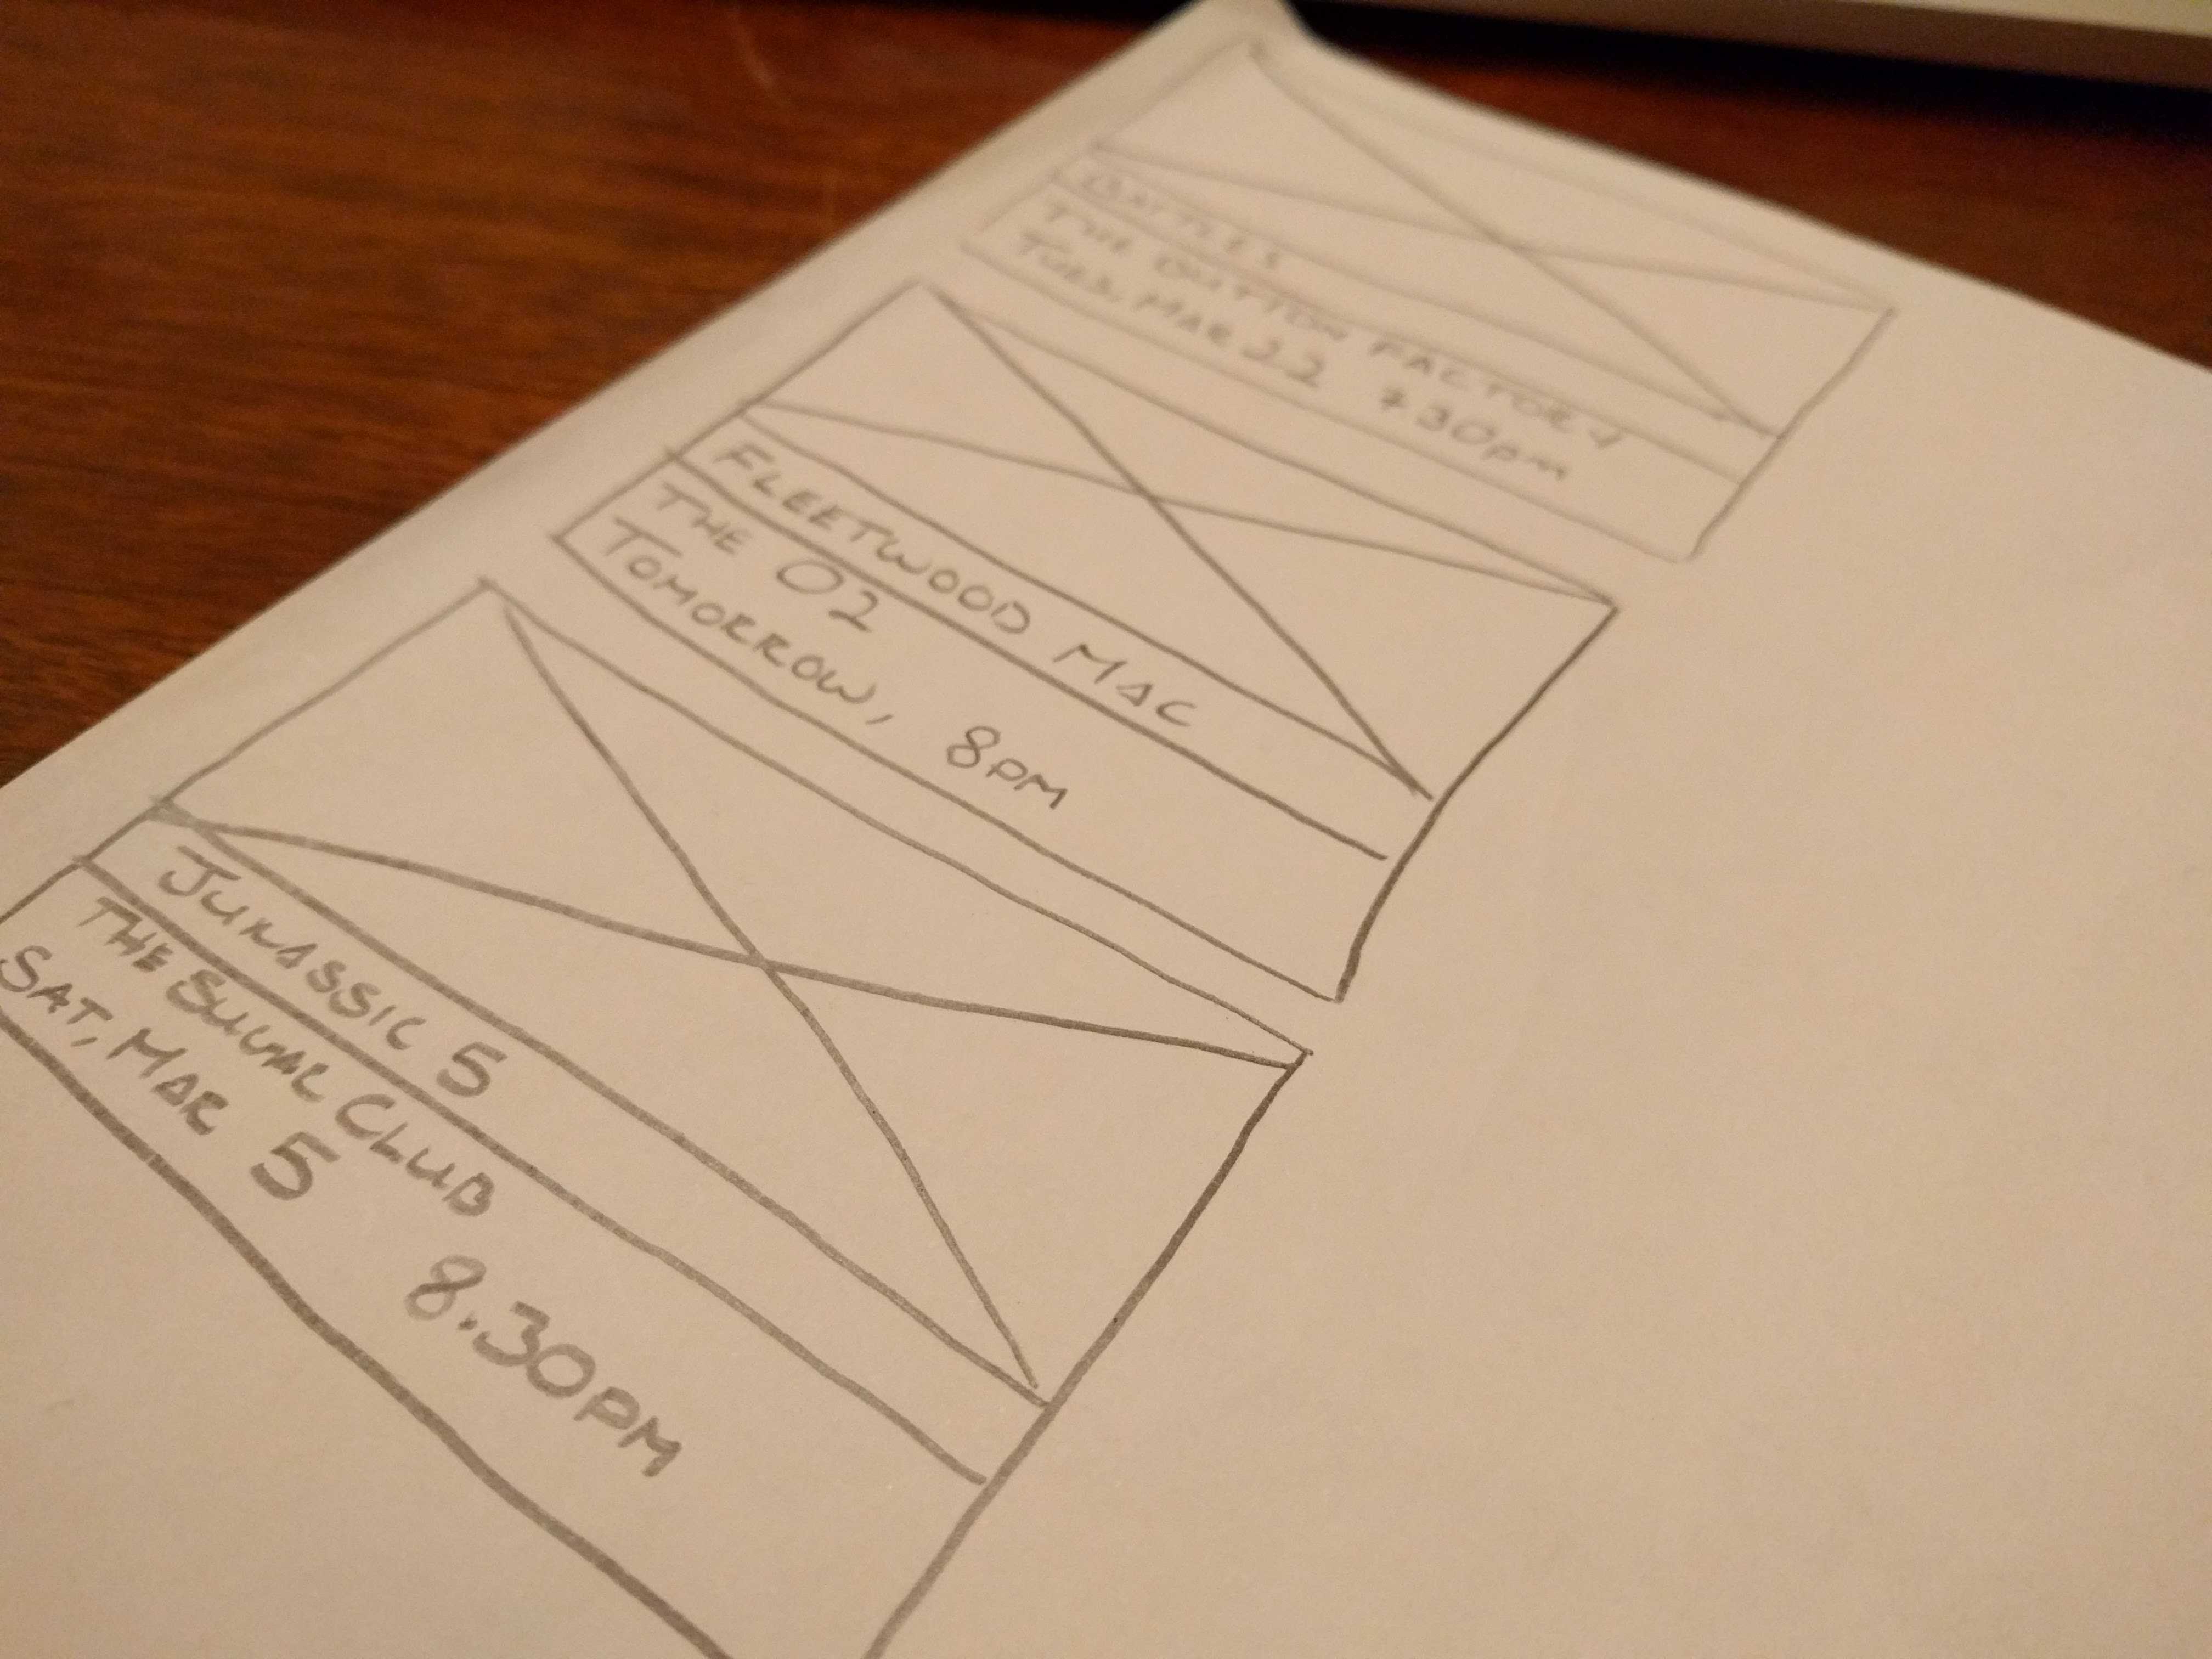 BATTLES
THE BUTTON FACTORY
TUES, MAR 22 7.30pm
FLEETWOOD MAC
THE O2
TOMORROW, 8PM
JURASSIC 5
THE SUGAR CLUB
SAT, MAR 5 8.30PM